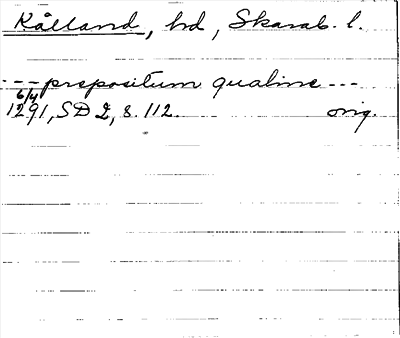 Kålland, hd, Skarab. l.
--- prepositum qualine ---
6/4
1291, SD 2, s. 112. orig.